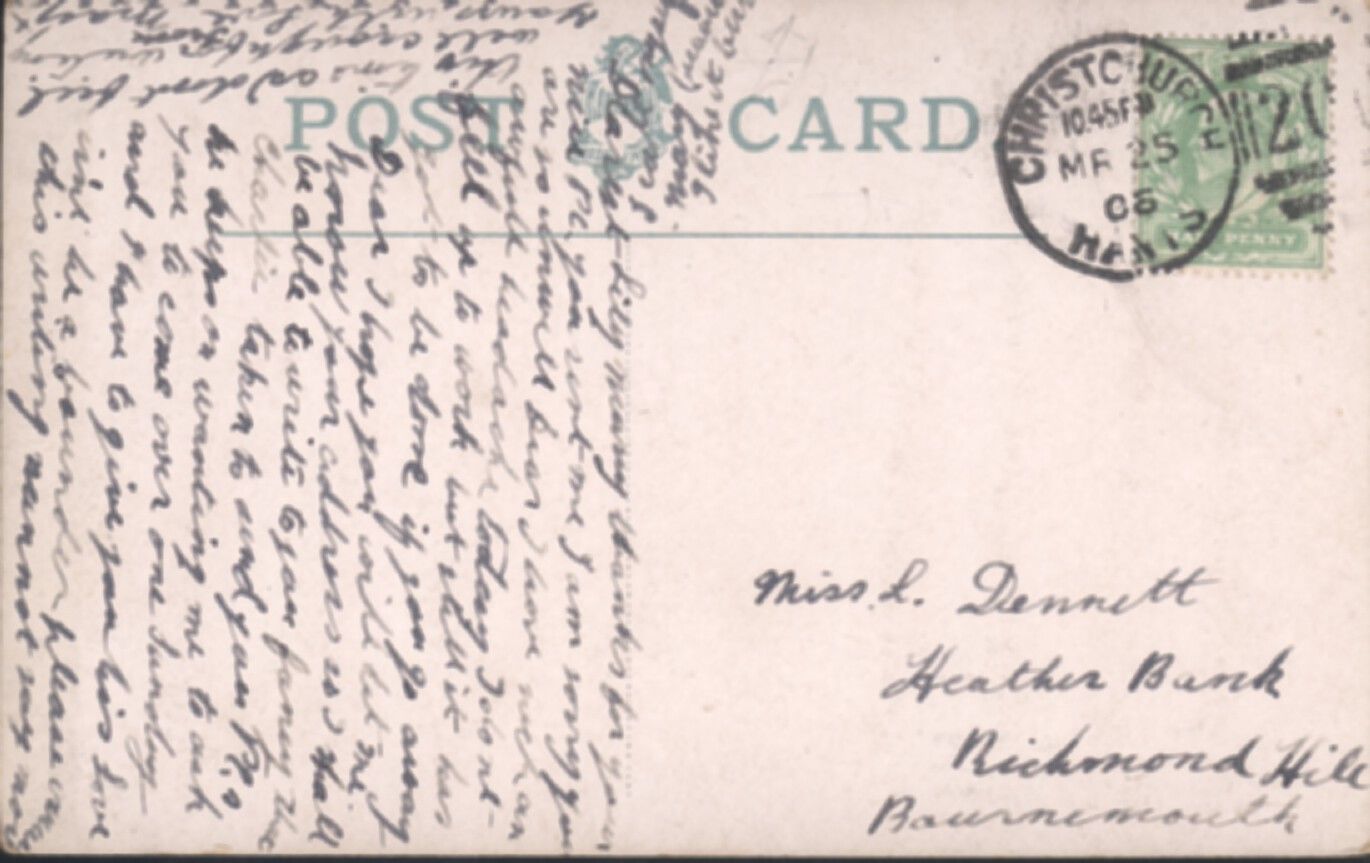 POST CARD
CHRISTCHURCH
10.45PM
MR 25
HANTS
PENNY
Miss. L. Dennett
Heather Bank
Richmond Hill
Bournemouth
Lily many thanks for your
nice PC you sent me I am sorry you
are so unwell dear I have such an
awful headache today I dont
feel up to work but still it has
to be done if you go away
Dear I hope you will let me
know your address as I shall
be able to write to you fancy the
Charlie taken to send you P.C
he keeps on wanting me to ask
you to come over one Sunday
and I have to give you his love
isnt he a bounder please
this writing
this time as I dont feel
well enough for writing